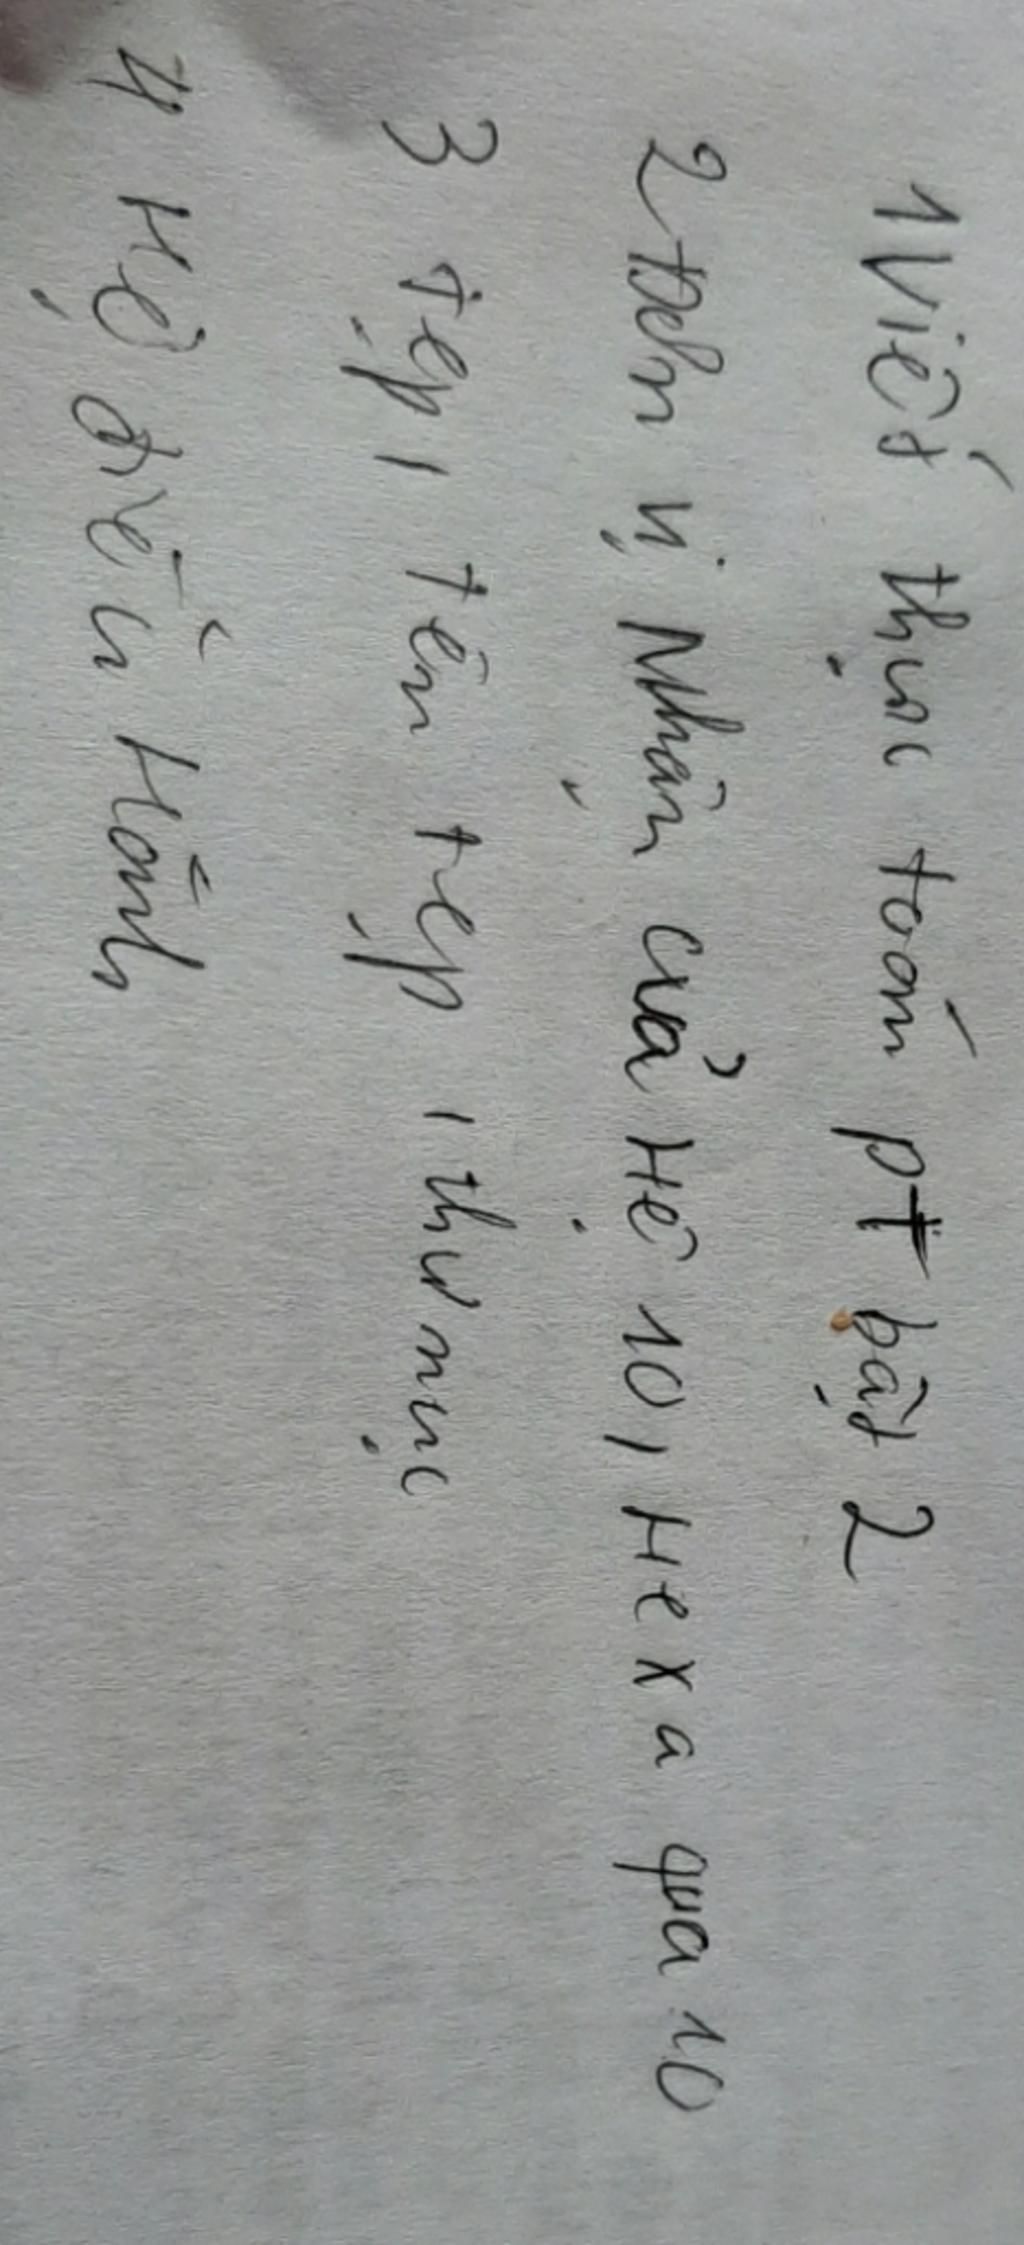 1 Viết thực toán pt bậc 2
2 Đơn vị Nhận của Hệ 10, Hexa qua 10
3 Tệp, tên tệp, thư mục
4 Hệ điều Hành